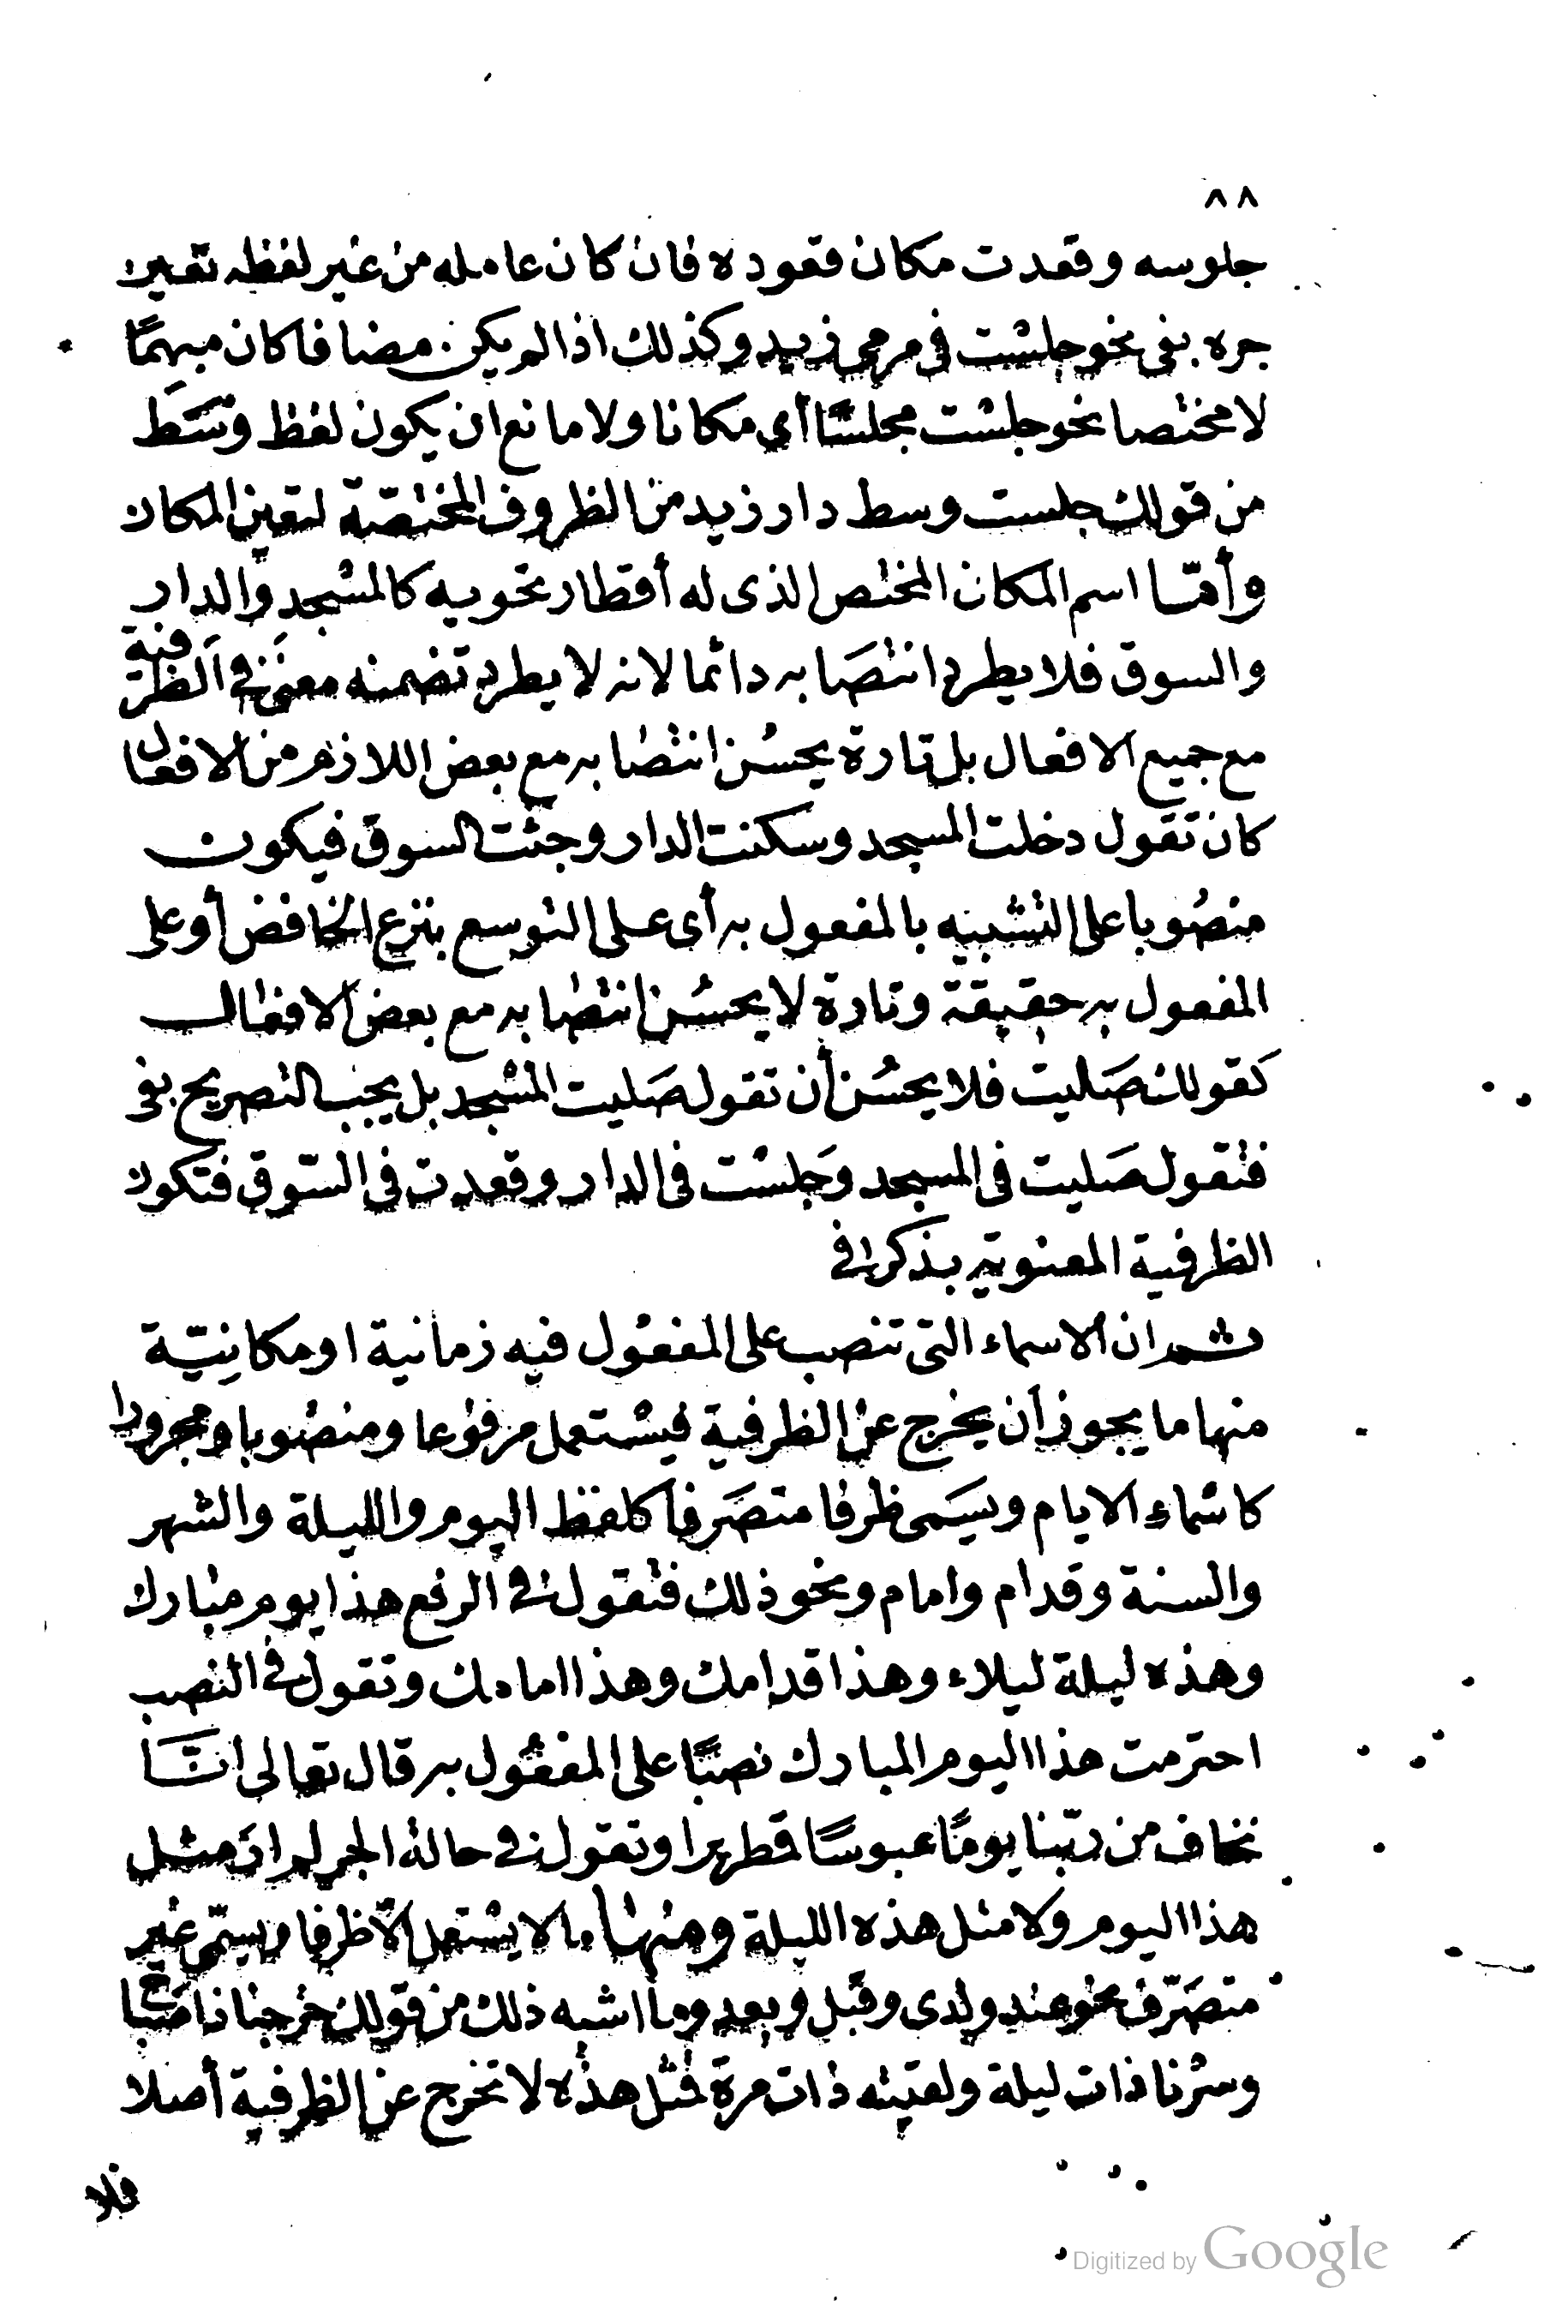 ٨٨
جلوسه وقعدت مكان قعوده فان كان عامله من غير لفظه تعين
جره بفى نحو جلست فى مرمى زيد وكذلك اذا لم يكن مضافا كان مبهمًا
لا مختصا نحو جلست مجلسًا أى مكانا ولا مانع ان يكون لفظ وسَط
من قولك جلست وسط دار زيد من الظروف المختصّة لتعين المكان
وأمّا اسم المكان المختص الذى له أقطار تحويه كالمسجد والدار
والسوق فلا يطرد انتصَابه دائما لانه لا يطرد تضمنه معنى فى الظرفية
مع جميع الافعال بل تارة يحسُن انتصابه مع بعض اللازم من الافعال
كان تقول دخلت المسجد وسكنت الدار وجئت السوق فيكون
منصُوبا على التشبيه بالمفعول به أى على التوسع بنزع الخافض أو على
المفعول به حقيقة وتارة لا يحسُن انتصابه مع بعض الافعال
كقولك صَليت فلا يحسُن أن تقول صَليت المسجد بل يجب التصريح بفى
فتقول صَليت فى المسجد وجَلست فى الدار وقعدت فى السّوق فتكون
الظرفية المعنوية بذكر فى
ثم ان الاسماء التى تنصب على المفعُول فيه زمانية او مكانِيّة
منها ما يجوز أن يخرج عن الظرفية فيستعمل مرفوعا ومنصُوبا ومجرورا
كاسماءِ الايام ويسَمى ظرفا متصَرفا كلفظ اليوم والليلة والشهر
والسنة وقدام وامام ونحو ذلك فتقول فى الرفع هذا يوم مبارك
وهذه ليلة ليلاء وهذا قدامك وهذا امامك وتقول فى النصب
احترمت هذا اليوم المبارك نصبًا على المفعُول به قال تعالى انّا
نخاف من ربّنا يومًا عبوسًا قمطريرا وتقول فى حالة الجر لم ارَ مثل
هذا اليوم ولا مثل هذه الليلة ومنها ما لا يستعمل الّا ظرفا ويسمّى غير
متصَرّف نحو عند ولدى وقبل وبعد وما اشبه ذلك من قولك خرجنا ذا صَباح
وسرْنا ذات ليلة ولقيته ذات مرة فمثل هذه لا تخرج عن الظرفية أصلا
فلا
Digitized by Google